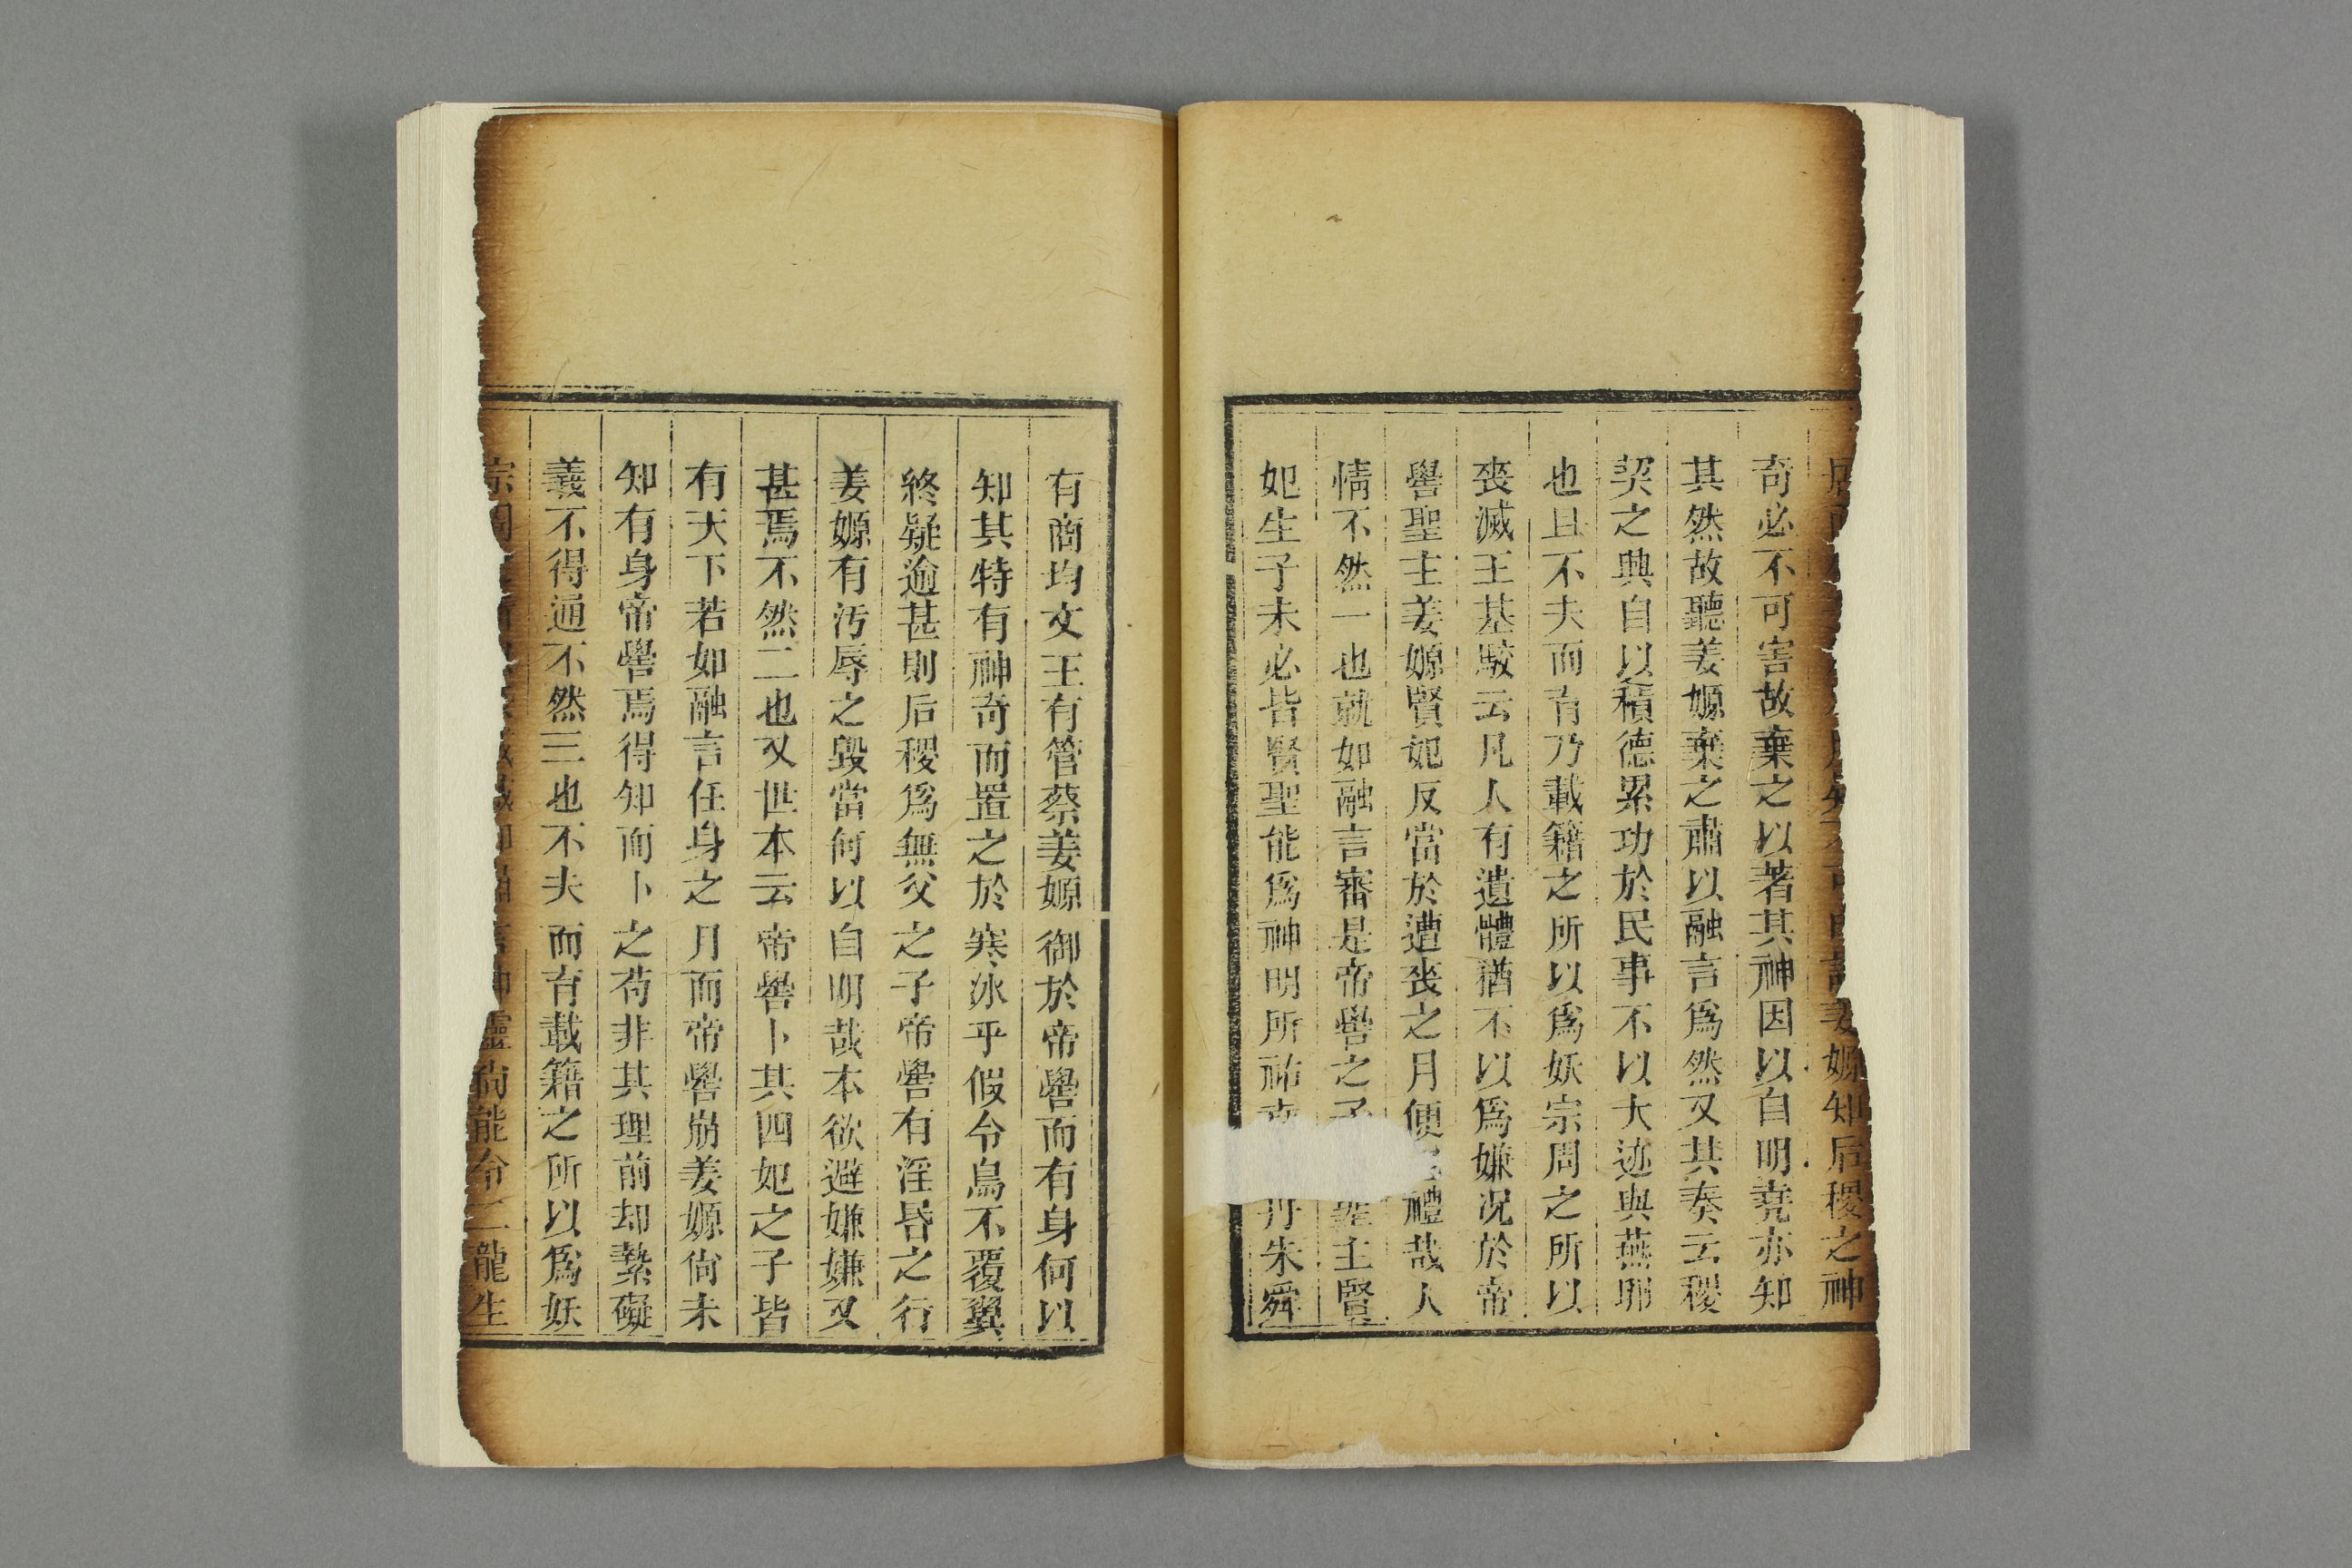 姜嫄知后稷之神
奇必不可害故棄之以著其神因以自明堯亦知
其然故聽姜嫄棄之肅以融言爲然又其奏云稷
契之興自以積德累功於民事不以大迹與燕卵
也且不夫而育乃載籍之所以爲妖宗周之所以
喪滅王基駮云凡人有遺體猶不以爲嫌況於帝
嚳聖主姜嫄賢妃反當於遭喪之月便禮哉人
情不然一也就如融言審是帝嚳之子主賢
妃生子未必皆賢聖能爲神明所祐丹朱舜
有商均文王有管蔡姜嫄御於帝嚳而有身何以
知其特有神奇而置之於寒冰乎假令鳥不覆翼
終疑逾甚則后稷爲無父之子帝嚳有淫昏之行
姜嫄有汚辱之毀當何以自明哉本欲避嫌嫌又
甚焉不然二也又世本云帝嚳卜其四妃之子皆
有天下若如融言任身之月而帝嚳崩姜嫄尙未
知有身帝嚳焉得知而卜之苟非其理前却縶礙
義不得通不然三也不夫而育載籍之所以爲妖
宗靈尙能令二龍生